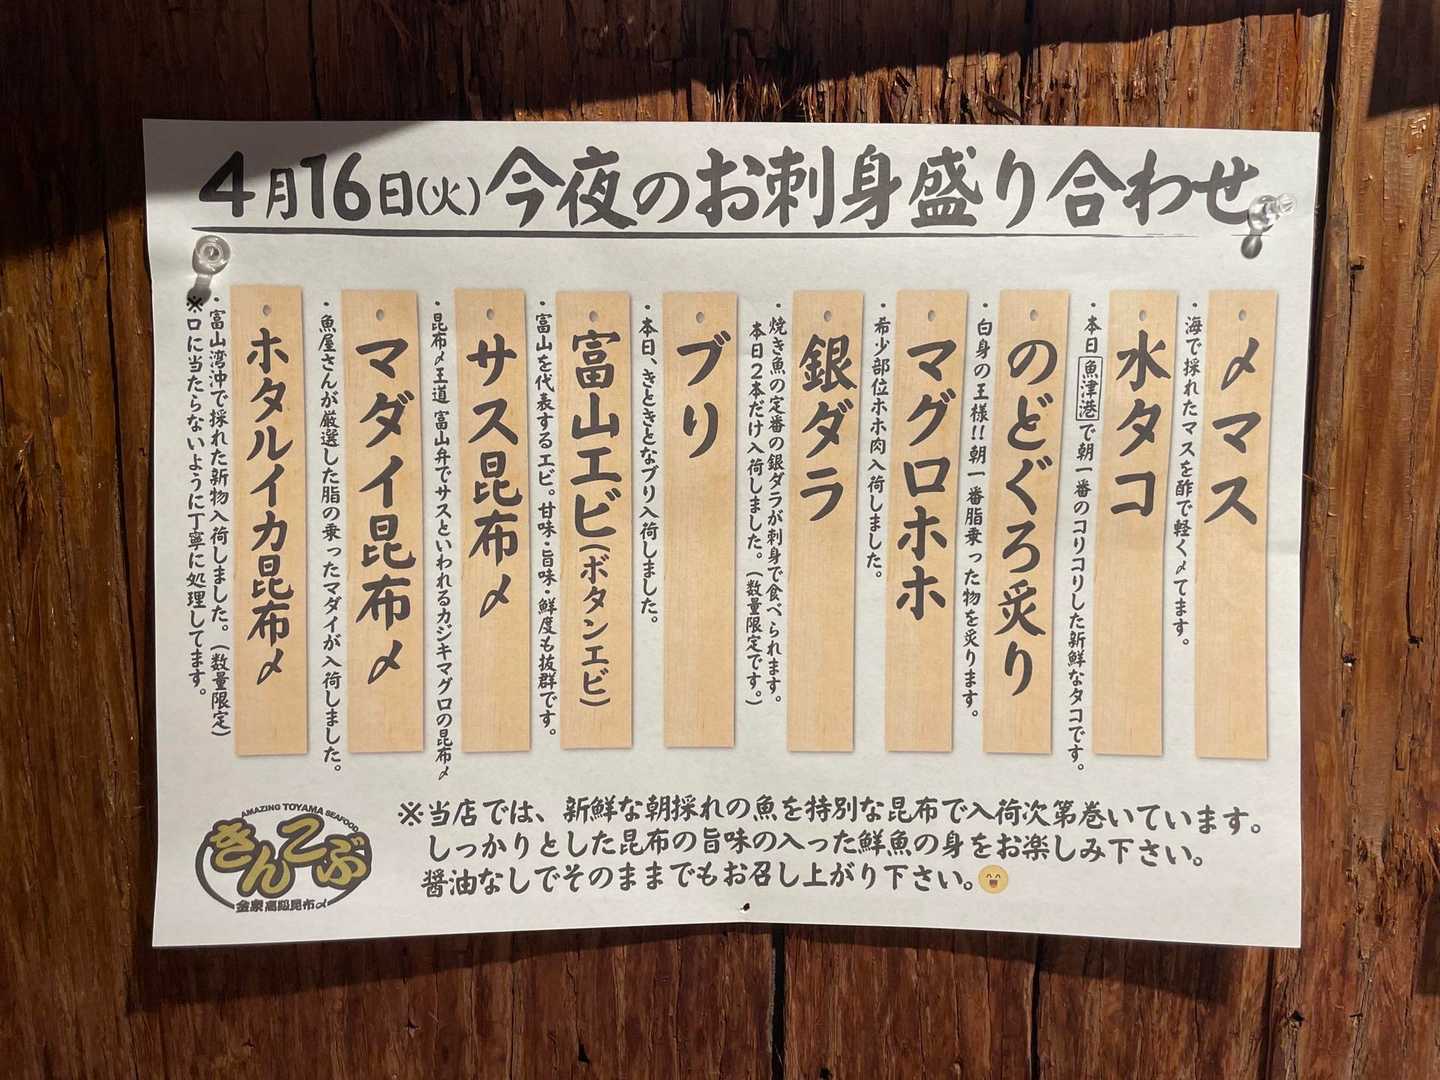 4月16日(火)今夜のお刺身盛り合わせ
〆マス
・海で採れたマスを酢で軽く〆てます。
水タコ
・本日魚津港で朝一番のコリコリした新鮮なタコです。
のどぐろ炙り
・白身の王様!!朝一番脂乗った物を炙ります。
マグロホホ
・希少部位ホホ肉入荷しました。
銀ダラ
・焼き魚の定番の銀ダラが刺身で食べられます。
本日2本だけ入荷しました。(数量限定です。)
ブリ
・本日、きときとなブリ入荷しました。
富山エビ(ボタンエビ)
・富山を代表するエビ。甘味・旨味・鮮度も抜群です。
サス昆布〆
・昆布〆王道 富山弁でサスといわれるカジキマグロの昆布〆
マダイ昆布〆
・魚屋さんが厳選した脂の乗ったマダイが入荷しました。
ホタルイカ昆布〆
・富山湾沖で採れた新物入荷しました。(数量限定)
※口に当たらないように丁寧に処理してます。
※当店では、新鮮な朝採れの魚を特別な昆布で入荷次第巻いています。
しっかりとした昆布の旨味の入った鮮魚の身をお楽しみ下さい。
醤油なしでそのままでもお召し上がり下さい。
AMAZING TOYAMA SEAFOOD
きんこぶ
高岡昆布〆